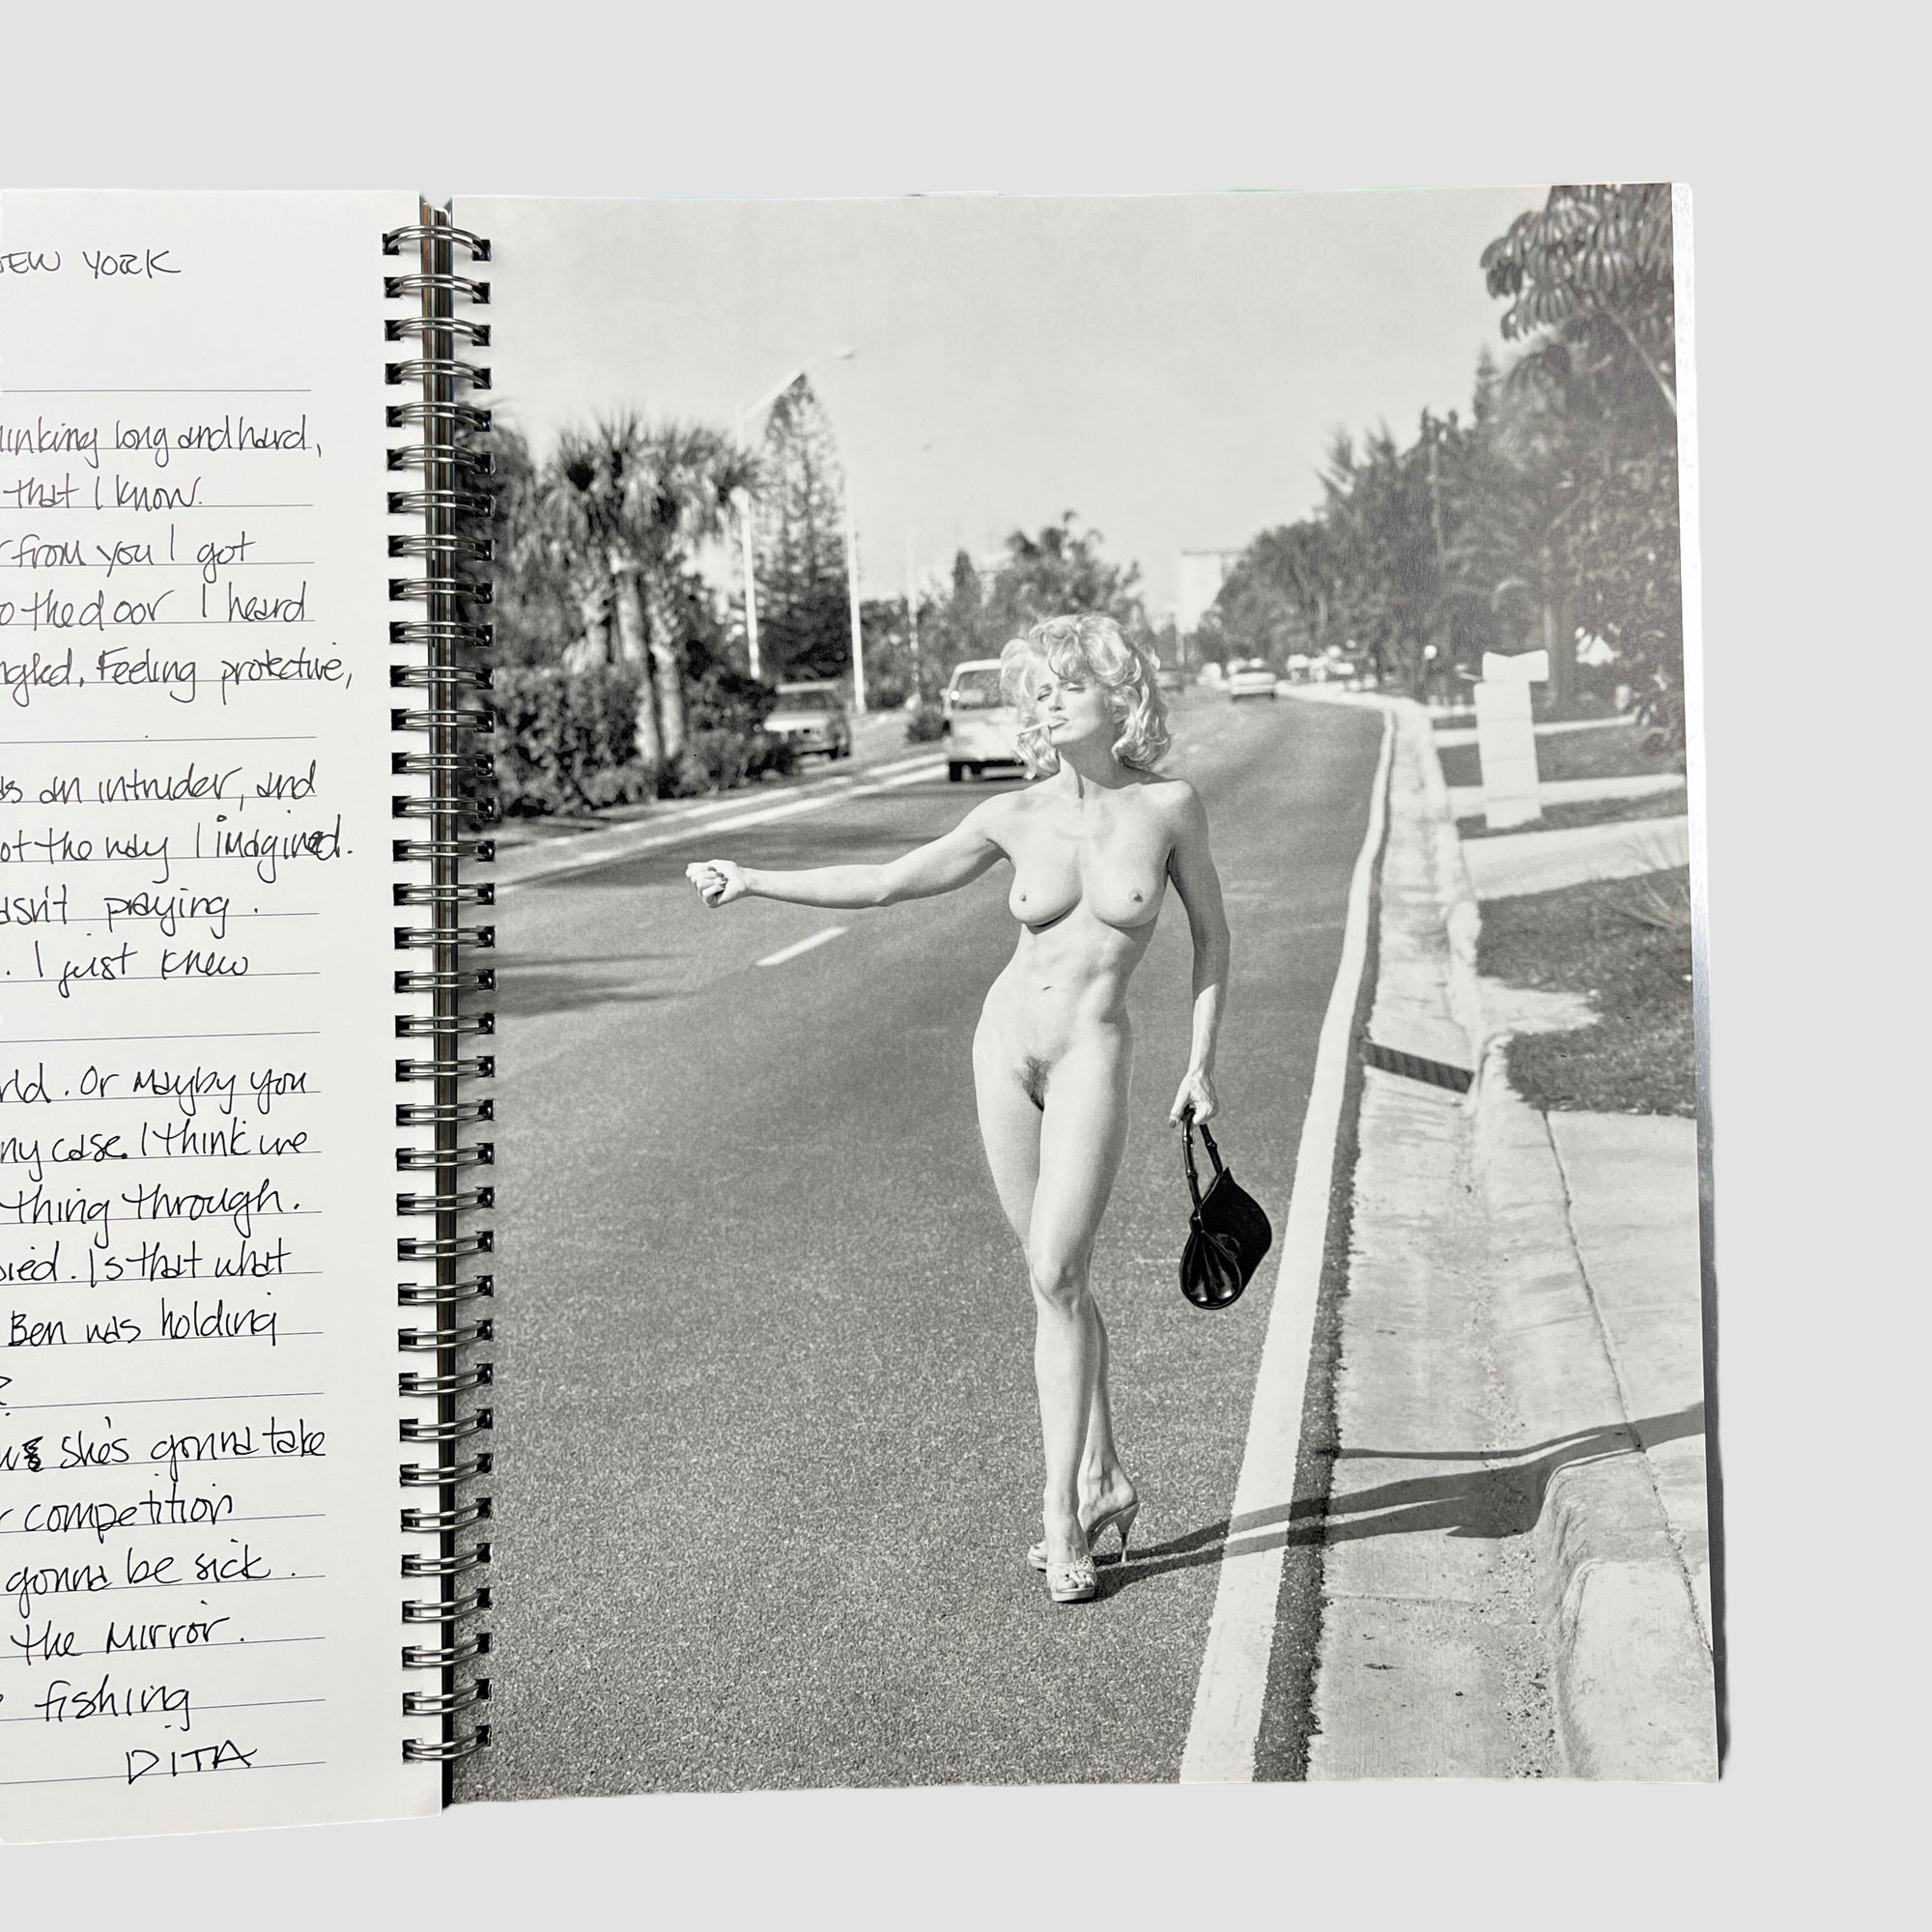 NEW YORK
thinking long and hard,
that I know.
from you I got
to the door I heard
Feeling protective,
an intruder, and
not the way I imagined.
wasn't praying.
. I just knew
. Or mayby you
my case. I think we
thing through.
. Is that what
Ben was holding
?
she's gonna take
competition
gonna be sick.
the mirror.
fishing
DITA